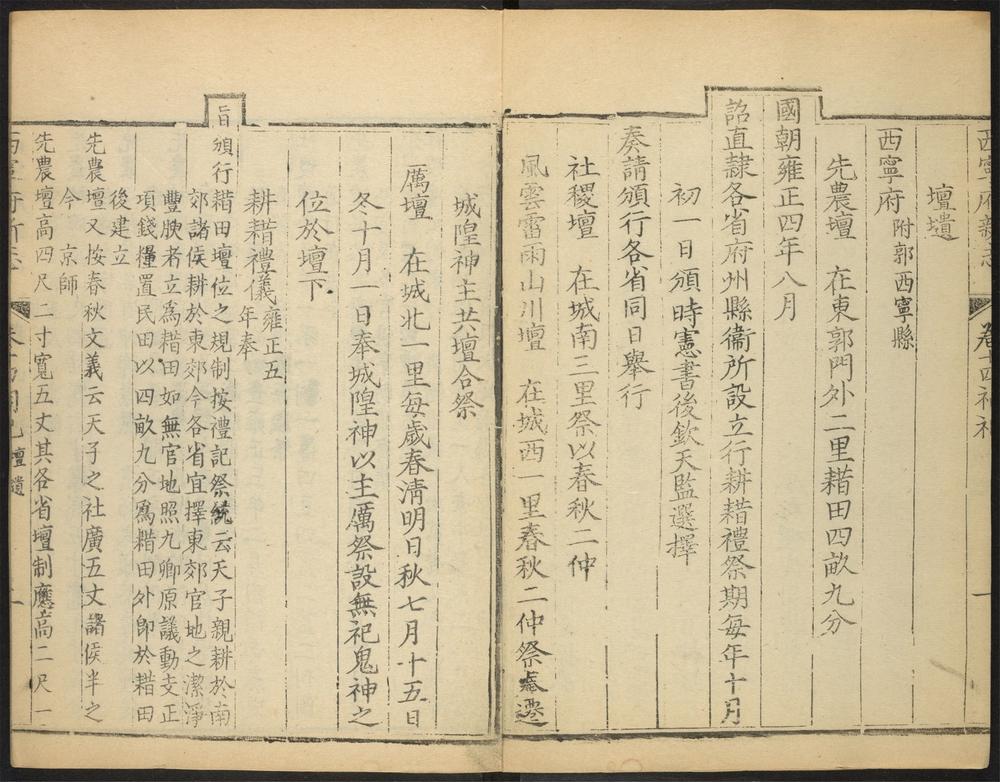 西寧府新志
卷十四 祠祀
一
壇壝
西寧府 附郭西寧縣
先農壇 在東郭門外二里耤田四畝九分
國朝雍正四年八月
詔直隸各省府州縣衞所設立行耕耤禮祭期每年十月
初一日頒時憲書後欽天監選擇
奏請頒行各省同日舉行
社稷壇 在城南三里祭以春秋二仲
風雲雷雨山川壇 在城西一里春秋二仲祭奉遷
城隍神主共壇合祭
厲壇 在城北一里每歲春淸明日秋七月十五日
冬十月一日奉城隍神以主厲祭設無祀鬼神之
位於壇下
耕耤禮儀 雍正五年奉
旨頒行耤田壇位之規制按禮記祭統云天子親耕於南
郊諸侯耕於東郊今各省宜擇東郊官地之潔淨
豐腴者立爲耤田如無官地照九卿原議動支正
項錢糧置民田以四畝九分爲耤田外卽於耤田
後建立
先農壇又按春秋文義云天子之社廣五丈諸侯半之
今 京師
先農壇高四尺二寸寬五丈其各省壇制應高二尺一
壇壝